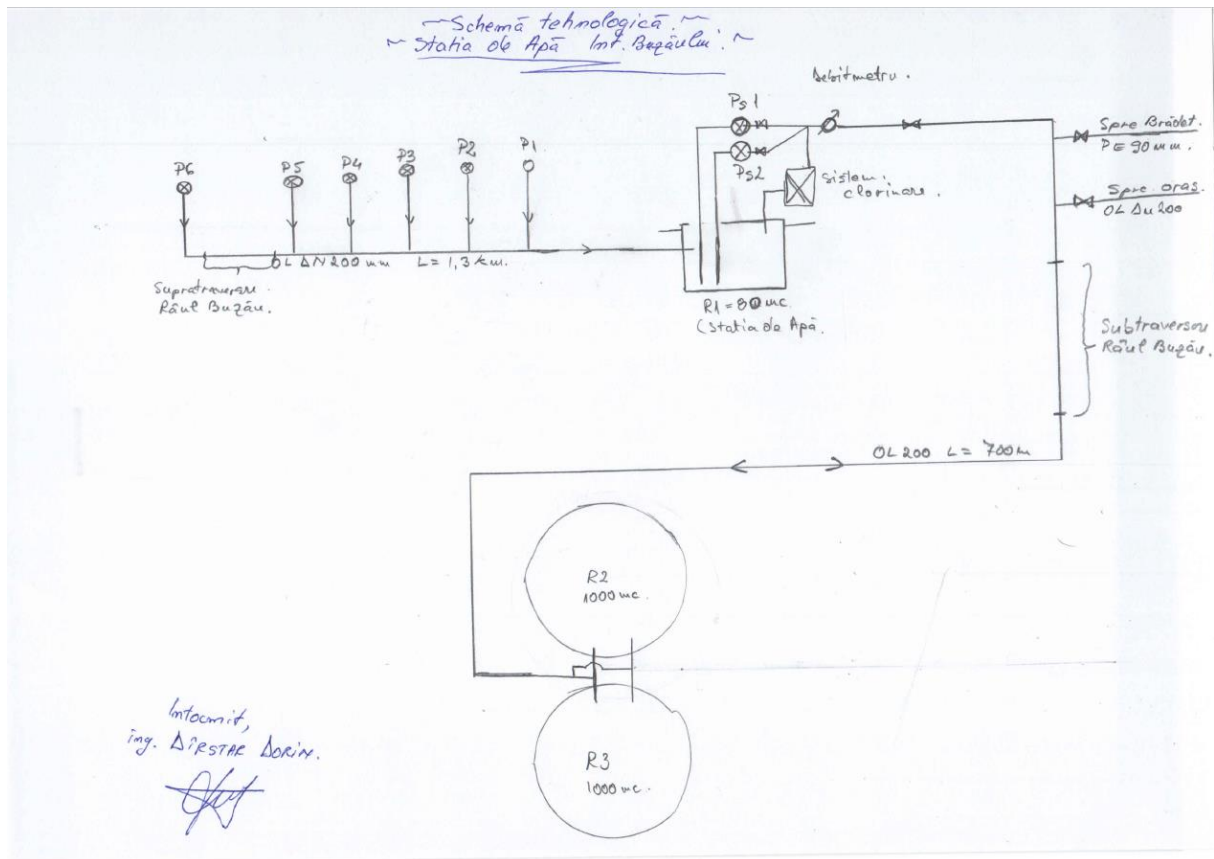 ~ Schemă tehnologică. ~
~ Statia de Apă Int. Buzăului. ~
Debitmetru.
Ps1
Ps2
Spre Brădet.
PE 90 mm.
Spre oras.
OL Δu 200
sistem.
clorinare.
P6
P5
P4
P3
P2
P1
OL ΔN 200 mm L = 1,3 km.
Supratraversare
Râul Buzău.
R1 = 80 mc.
(Statia de Apă.
Subtraversare
Râul Buzău.
OL 200 L = 700 m
R2
1000 mc.
R3
1000 mc.
Intocmit,
ing. DÎRSTAR DORIN.